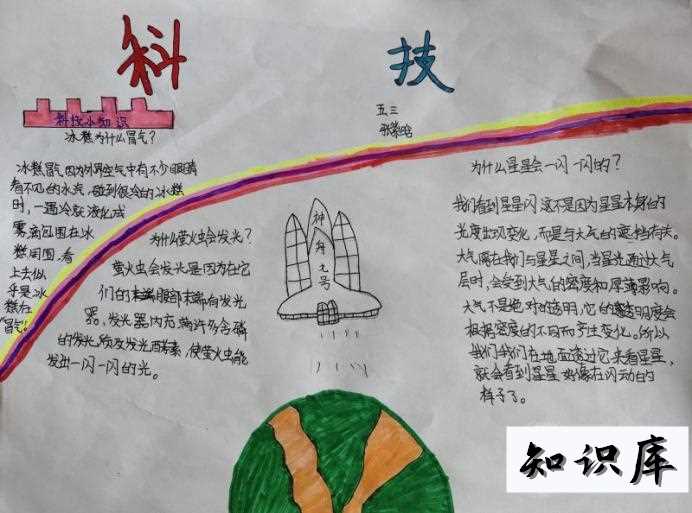 科 技
科技小知识
冰糕为什么冒气?
五三
冰糕冒气因为外界空气中有不少眼睛
看不见的水汽,碰到很冷的冰糕
时,一遇冷就液化成
雾滴包围在冰
糕周围,看
上去似
乎是冰
糕在
"冒气"。
为什么萤火虫会发光?
萤火虫会发光是因为在它
们的末端腹部末端有发光
器,发光器内充满许多含磷
的发光质及发光酵素,使萤火虫能
发出一闪一闪的光。
神
舟
七
号
为什么星星会一闪一闪的?
我们看到星星闪,这不是因为星星本身的
光度出现变化,而是与大气的遮挡有关。
大气隔在我们与星星之间,当星光通过大气
层时,会受到大气的密度和厚薄影响。
大气不是绝对的透明,它的透明度会
根据密度的不同而产生变化。所以
我们我们在地面透过它来看星星,
就会看到星星好像在闪动的
样子了。
知识库